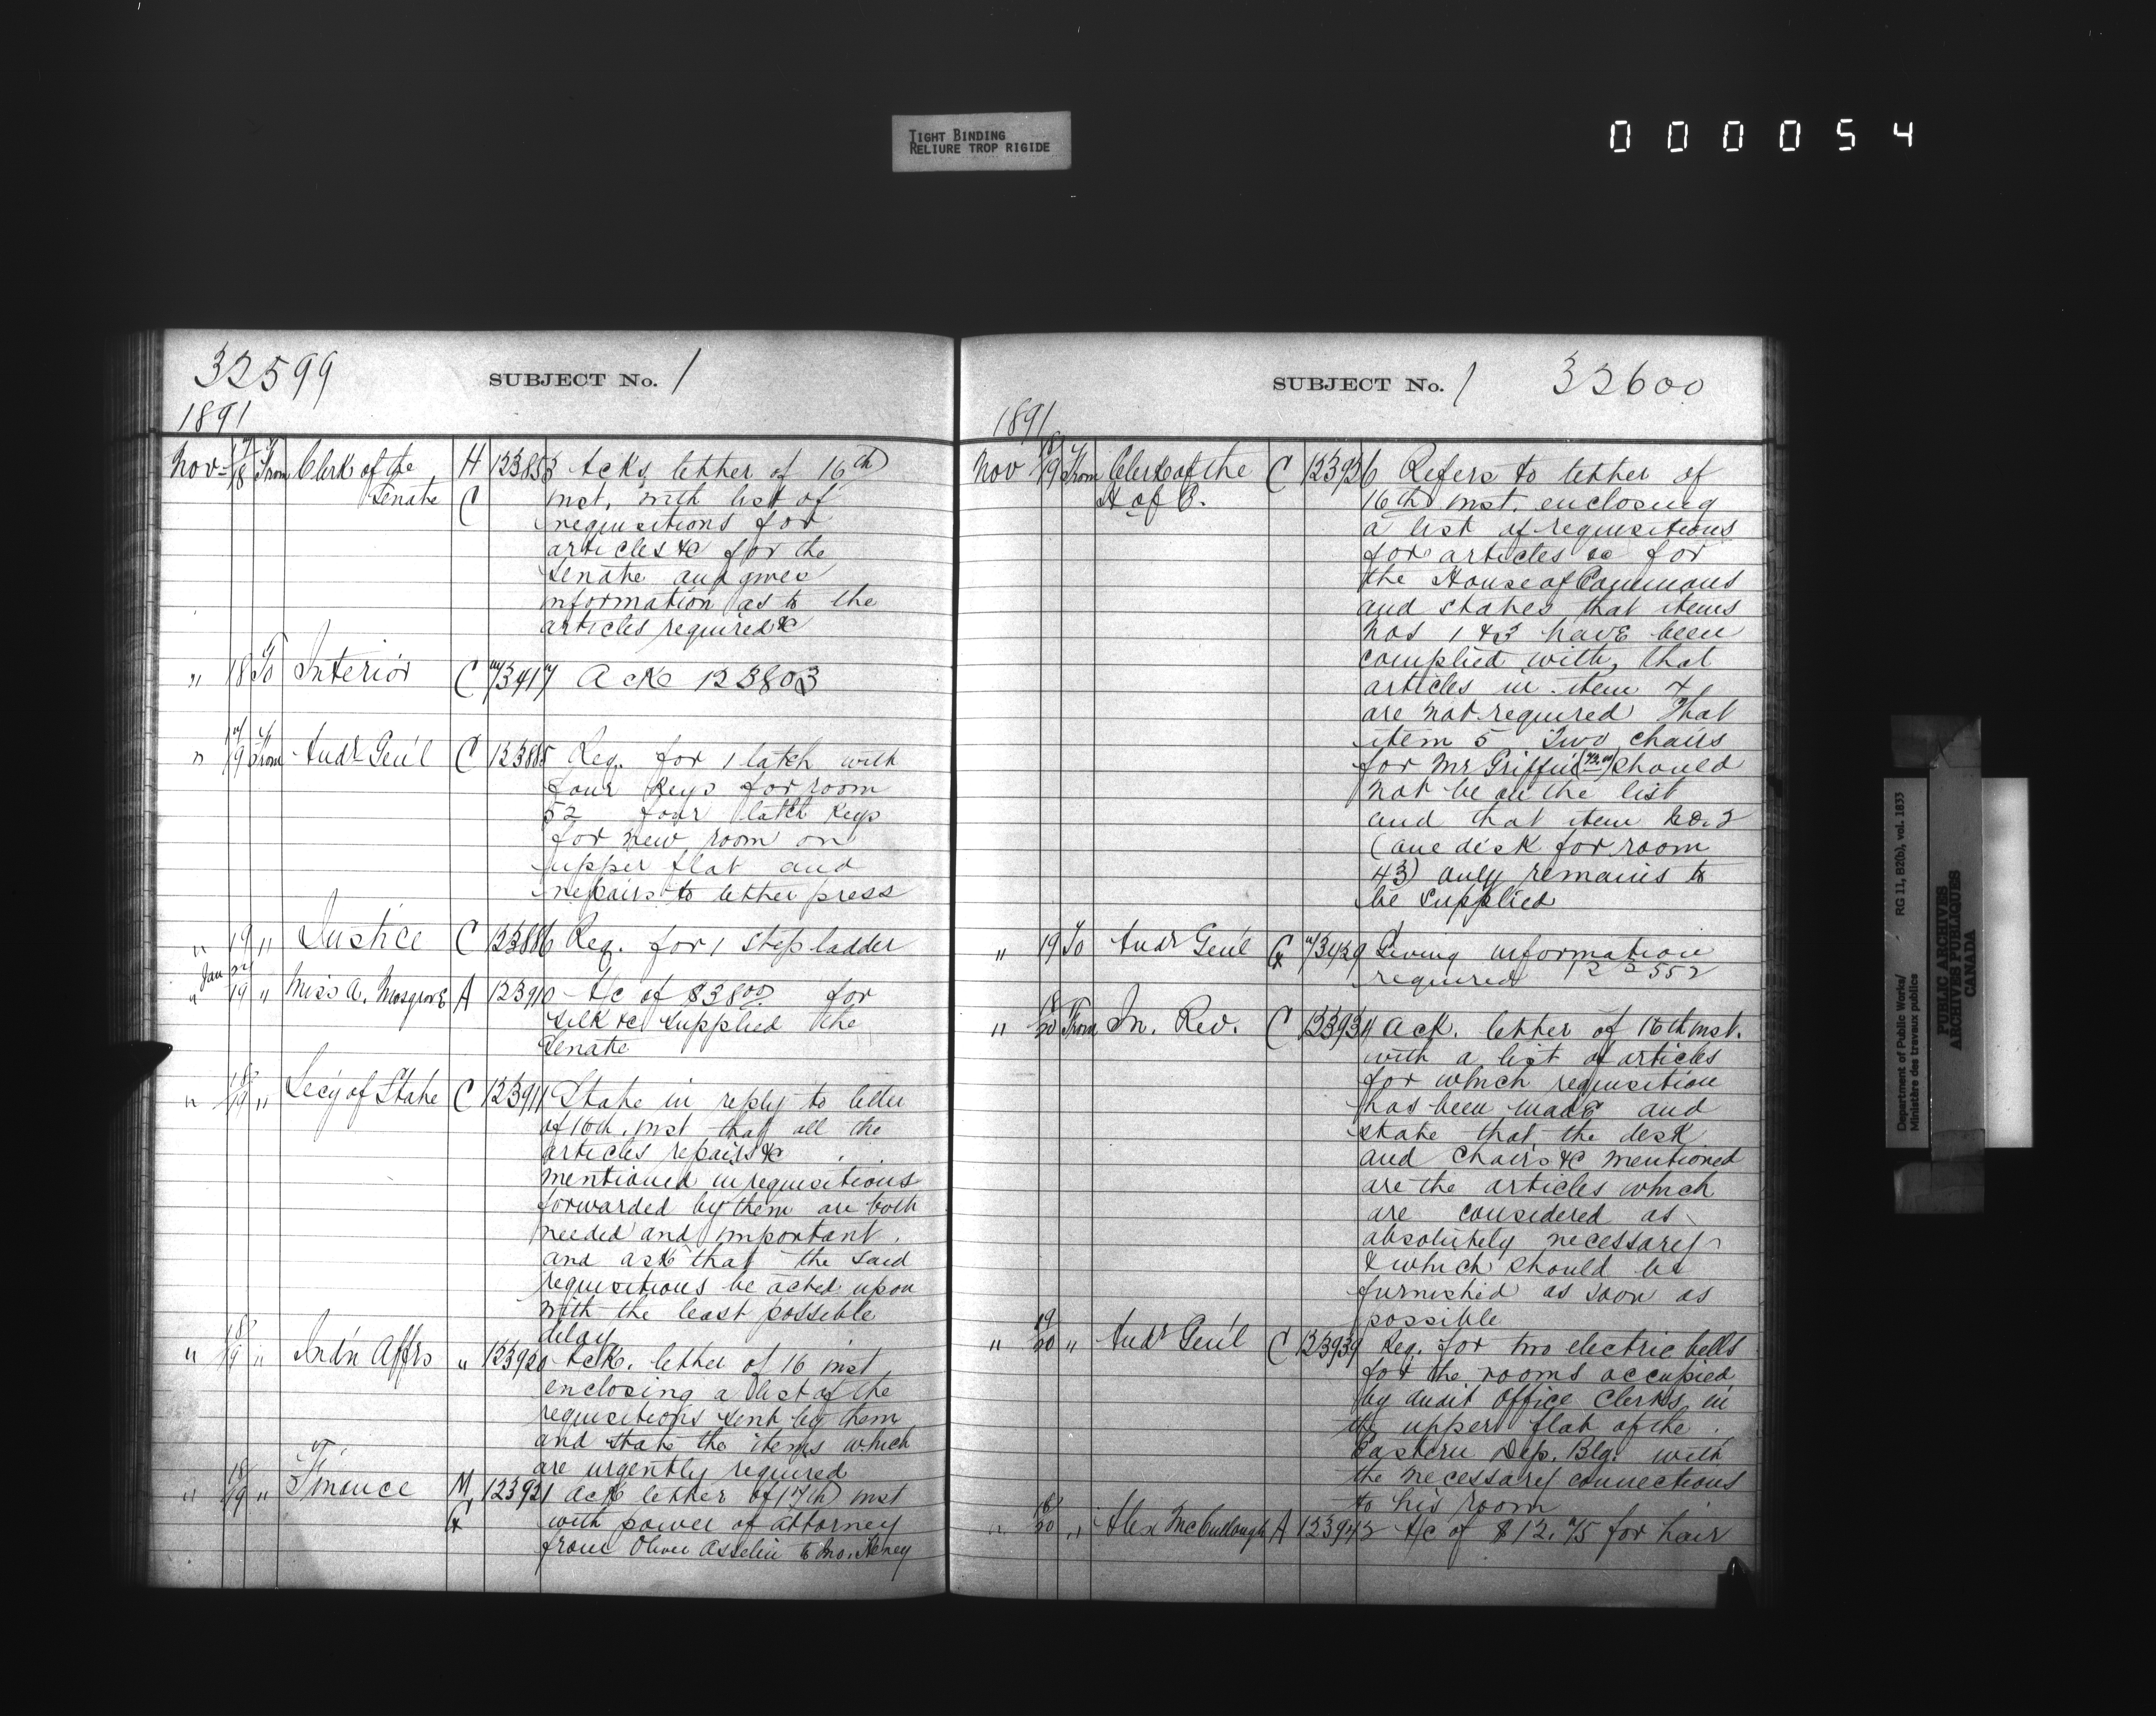 TIGHT BINDING
RELIURE TROP RIGIDE
000054
32599
SUBJECT No. 1
1891
Nov 17/18 From Clerk of the Senate H C 123853 Acks letter of 16th
inst, with list of
requisitions for
articles &c for the
Senate and gives
information as to the
articles required &c
" 18 To Interior C 73417 Ack 123803
" 17/19 From Audr Gen'l C 123885 Req. for 1 latch with
four keys for room
52 four latch keys
for new room on
upper flat and
repairs to letter press
" 19 " Justice C 123886 Req. for 1 step ladder
Jan
" 19 " Miss A. Mosgrove A 123910 A/c of $38.00 for
silk &c supplied the
Senate
" 18/19 " Secy of State C 123911 State in reply to letter
of 16th. inst that all the
articles repairs &c
mentioned in requisitions
forwarded by them are both
needed and important.
and ask that the said
requisitions be acted upon
with the least possible
delay
" 18/19 " Ind'n Affrs " 123920 Ack. letter of 16 inst
enclosing a list of the
requisitions sent by them
and state the items which
are urgently required
" 18/19 " Finance M 123921 Ack letter of 17th inst
with power of attorney
from Oliver Asselin to Jno. Heney
SUBJECT No. 1
32600
1891
Nov 18/19 From Clerk of the H of C. C 123926 Refers to letter of
16th inst. enclosing
a list of requisitions
for articles &c for
the House of Commons
and states that items
Nos 1 & 3 have been
complied with, that
articles in item 4
are not required That
item 5 Two chairs
for Mr Griffin should
not be on the list
and that item No. 2
(one desk for room
43) only remains to
be supplied
" 19 To Audr Gen'l 73429 Giving information
required 122552
" 18/20 From In. Rev. C 123934 Ack. letter of 16th inst.
with a list of articles
for which requisition
has been made and
state that the desk
and chairs &c mentioned
are the articles which
are considered as
absolutely necessary
& which should be
furnished as soon as
possible
" 19/20 " Audr Gen'l C 123939 Req. for two electric bells
for the rooms occupied
by Audit Office Clerks in
the upper flat of the
Eastern Dep. Blg. with
the necessary connections
to his room
" 18/20 " Alex McCullough A 123942 A/c of $12.75 for hair
Department of Public Works/
Ministère des travaux publics
RG 11, B2(b), vol. 1833
PUBLIC ARCHIVES
ARCHIVES PUBLIQUES
CANADA